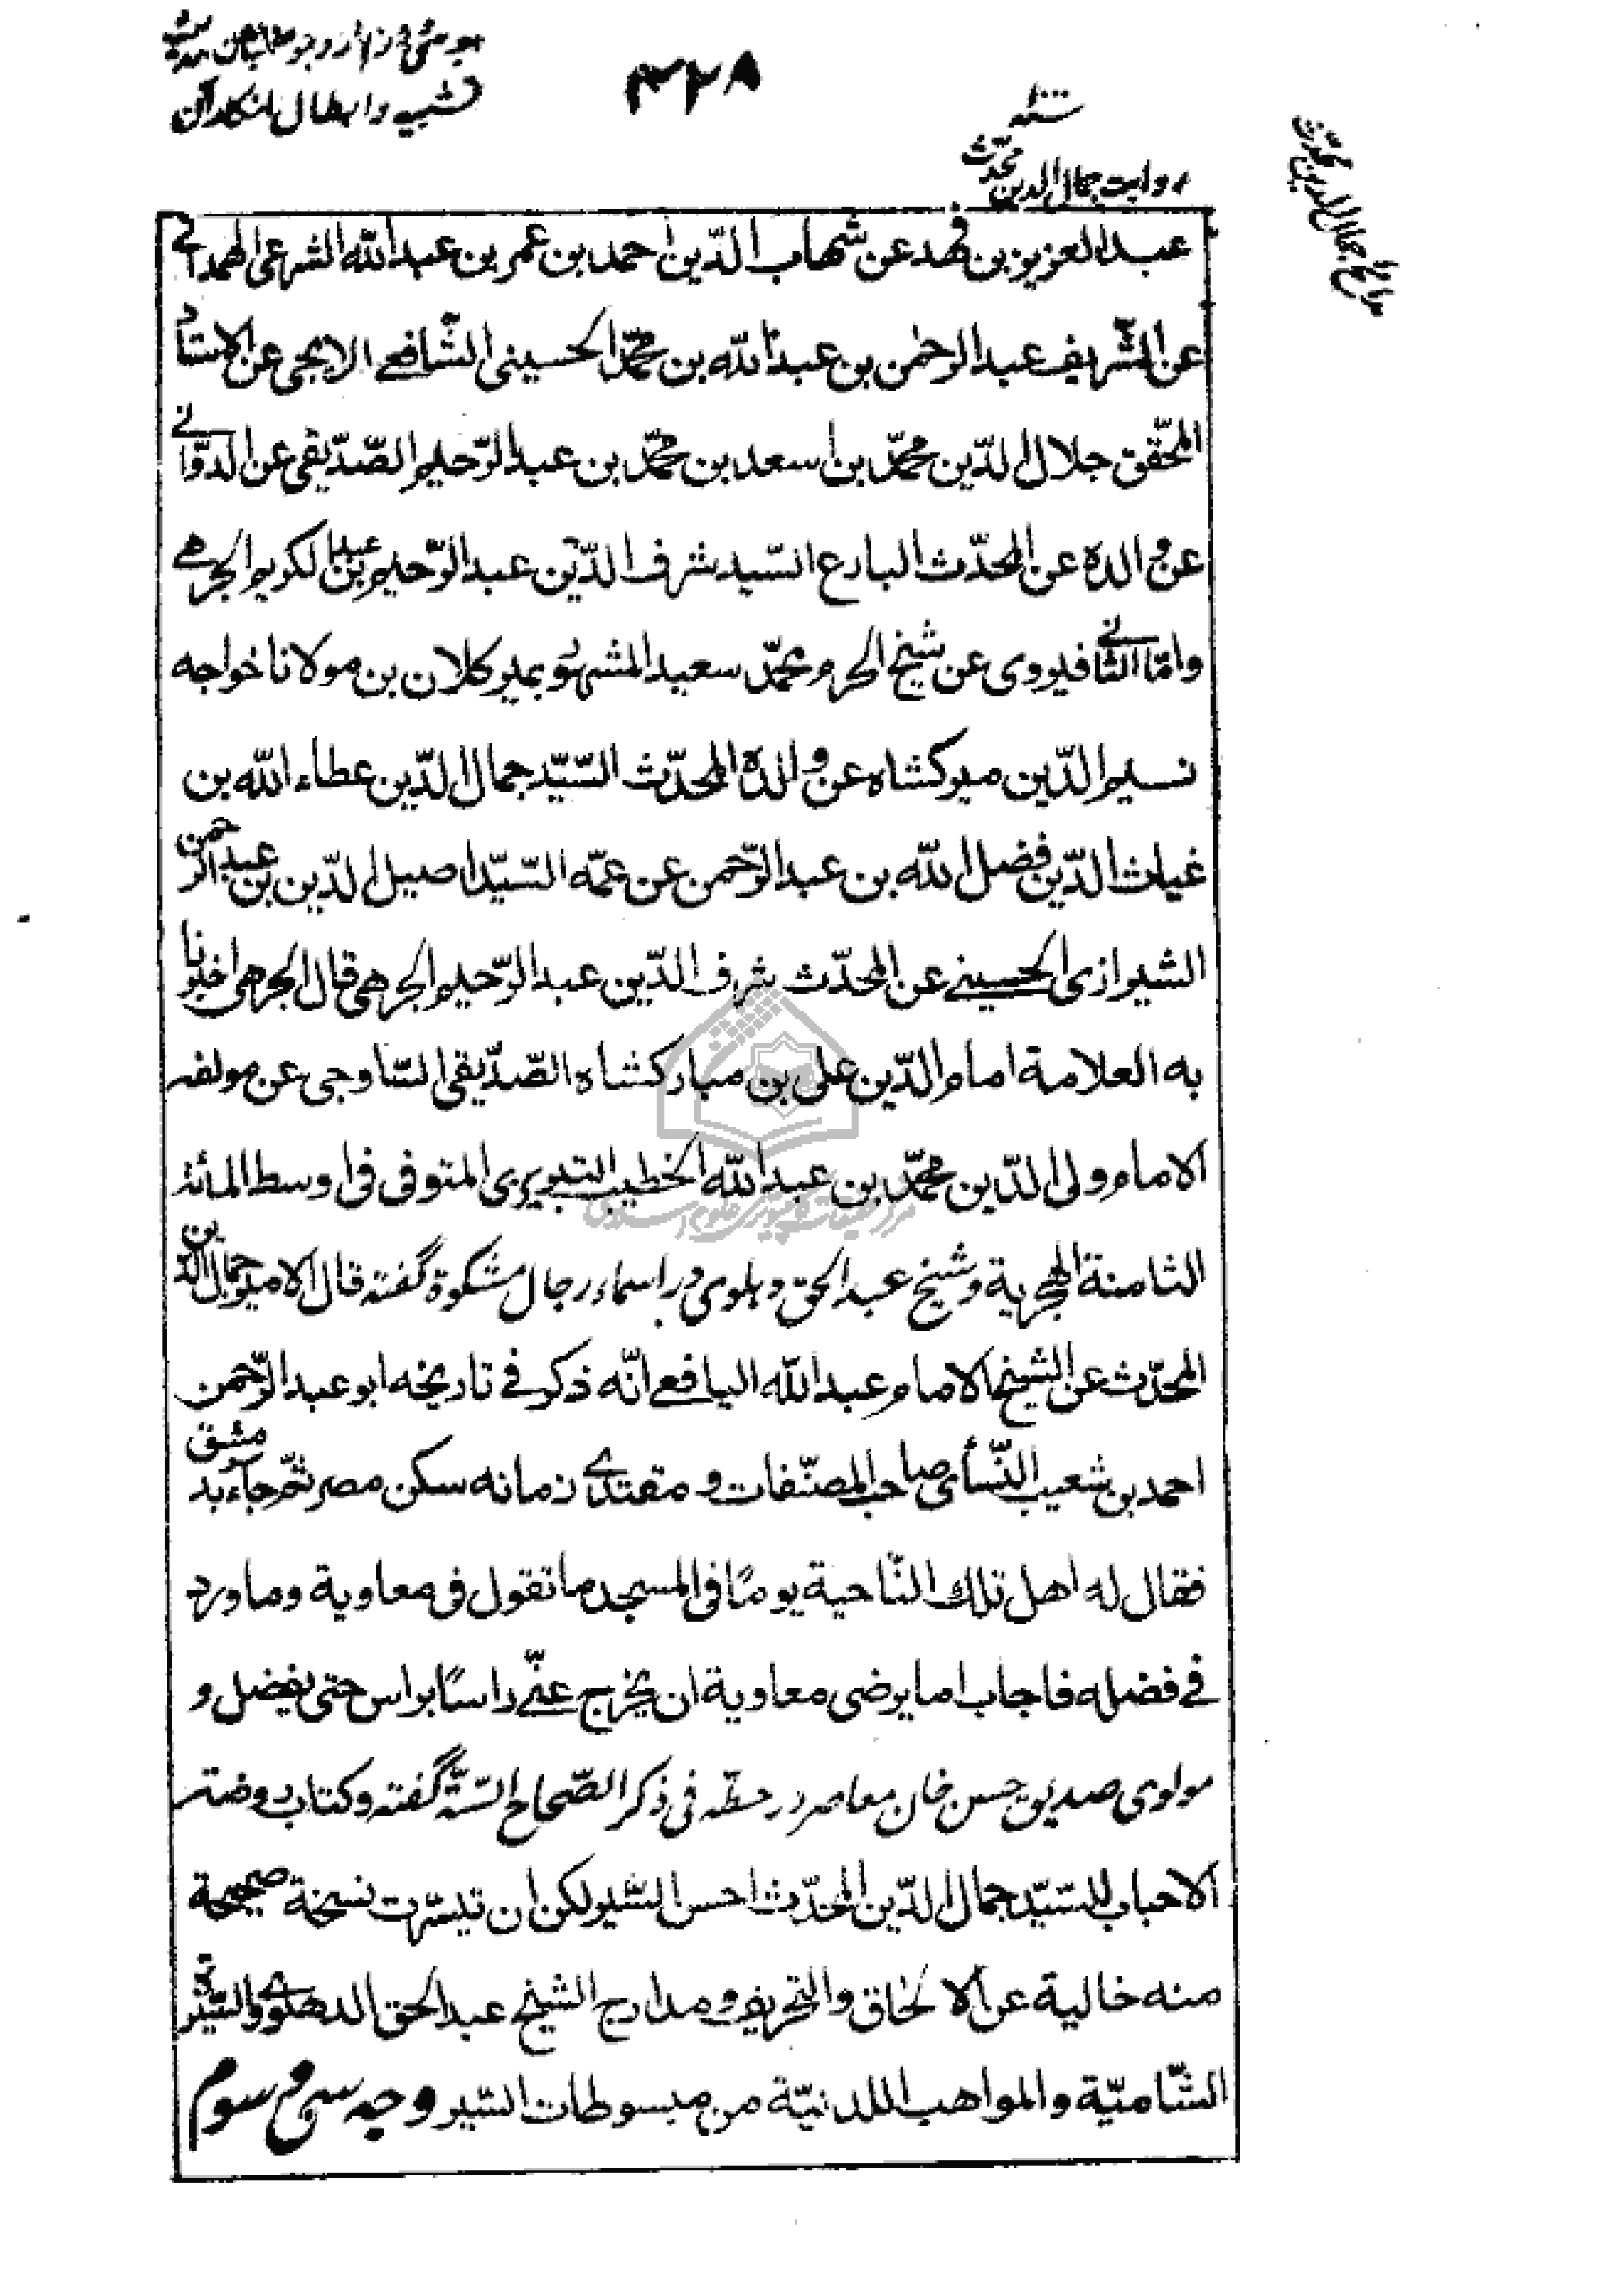 تشبیه وابطال
۴۲۸
سنة ۱۰۰۰
روایت جمال الدین محدّث
سوانح جمال الدین محدّث
عبد العزیز بن فهد عن شهاب الدّین احمد بن عمر بن عبد الله الشرعی الهمدانے
عن الشّریف عبد الرحمٰن بن عبد الله بن محمّد الحسینی الشّافعے الایجی عن الاستاد
المحقق جلال الدّین محمّد بن اسعد بن محمّد بن عبد الرّحیم الصّدّیقی عن الدّوّانے
عن والده عن المحدّث البارع السّید شرف الدّین عبد الرّحیم بن عبد الکریم الجرهے
وامّا الثّانے فیروی عن شیخ الحرم محمّد سعید المشهور بمیر کلان بن مولانا خواجه
نسیم الدّین میر کشاه عن والده المحدّث السّیّد جمال الدّین عطاء الله بن
غیاث الدّین فضل الله بن عبد الرّحمن عن عمّه السّیّد اصیل الدّین بن عبد الرحمن
الشیرازی الحسینے عن المحدّث شرف الدّین عبد الرّحیم الجرهی قال الجرهی اخبرنا
به العلامة امام الدّین علی بن مبارکشاه الصّدّیقی السّاوجی عن مولفه
الامام ولی الدّین محمّد بن عبد الله الخطیب التبریزی المتوفی فی اوسط المائة
الثامنة الهجریة وشیخ عبد الحق دهلوی در اسماء رجال مشکوة گفته قال الامیر جمال الدین
المحدّث عن الشیخ الامام عبد الله الیافعے انّه ذکر فے تاریخه ابو عبد الرّحمن
احمد بن شعیب النّسأی صاحب المصنّفات و مقتدے زمانه سکن مصر ثمّ جاء بدمشق
فقال له اهل تلك النّاحیة یومًا فی المسجد ما تقول فی معاویة وما ورد
فے فضله فاجاب اما یرضی معاویة ان یخرج عنّے راسًا براس حتی یفضل و
مولوی صدیق حسن خان معاصر در حطّه فی ذکر الصّحاح السّتّة گفته وکتاب روضة
الاحباب للسّیّد جمال الدّین المحدّث احسن السّیر لکن ان تیسّرت نسخة صحیحة
منه خالیة عن الالحاق والتحریف و مدارج الشیخ عبد الحق الدهلوے والسّیرة
الشّامیّة والمواهب اللدنیّة من مبسوطات السّیر وجه سی و سوم